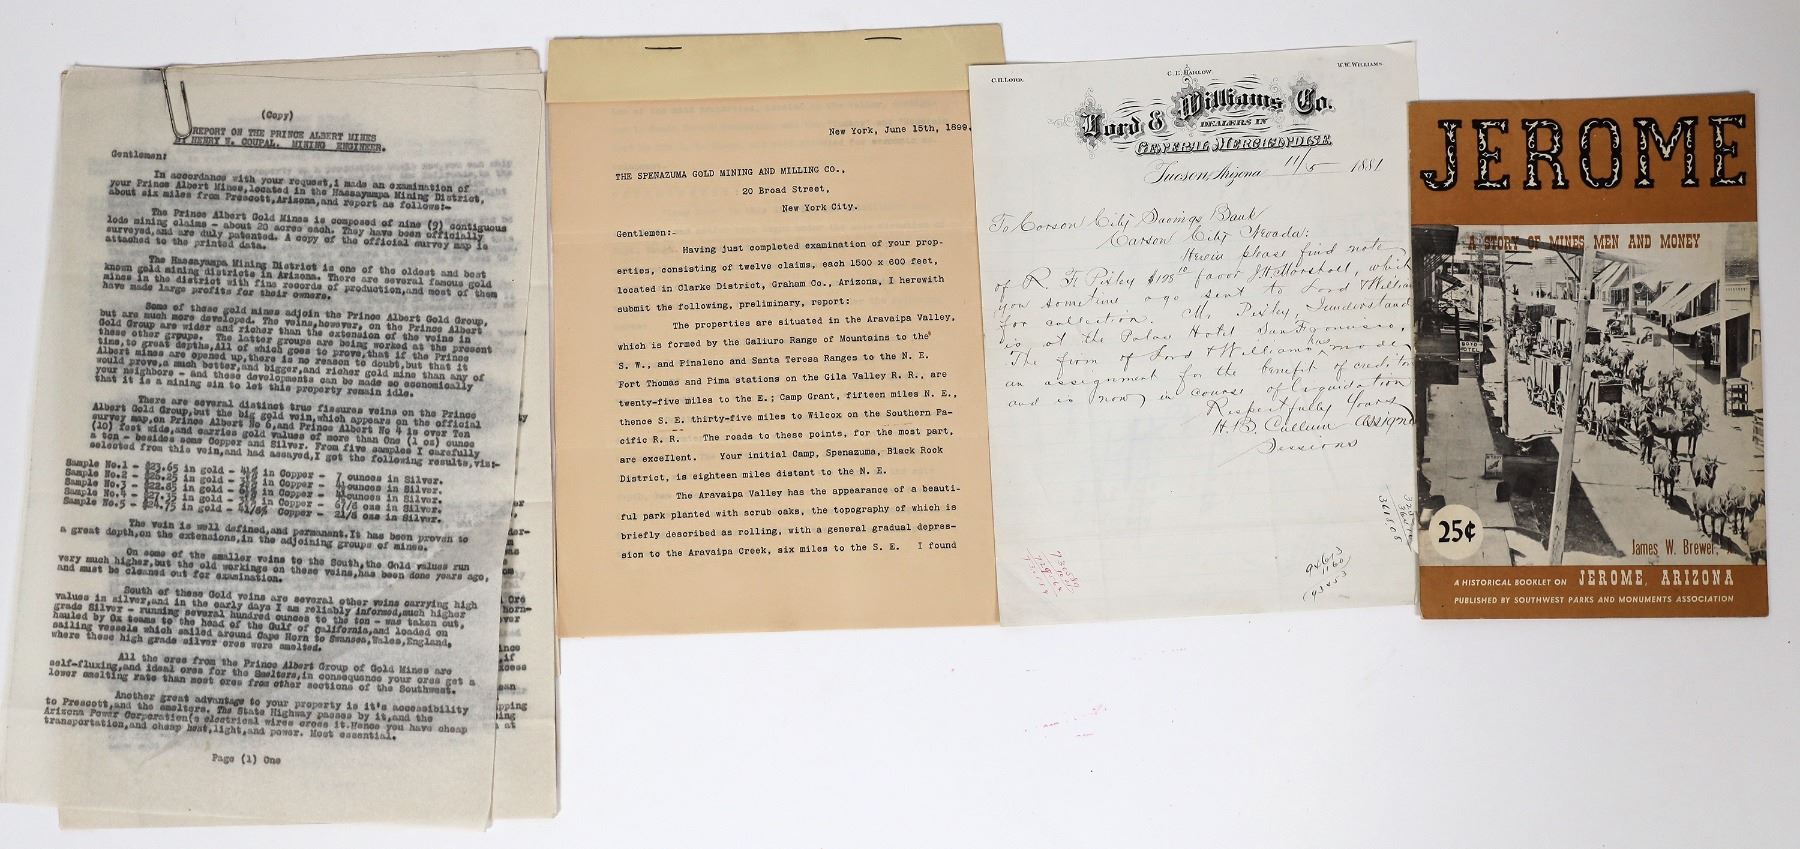 (Copy)
REPORT ON THE PRINCE ALBERT MINES
BY HENRY W. COUPAL, MINING ENGINEER.
Gentlemen:
In accordance with your request,i made an examination of
your Prince Albert Mines,located in the Hassayampa Mining District,
about six miles from Prescott,Arizona,and report as follows:-
The Prince Albert Gold Mines is composed of nine (9) contiguous
lode mining claims - about 20 acres each. They have been officially
surveyed,and are duly patented. A copy of the official survey map is
attached to the printed data.
The Hassayampa Mining District is one of the oldest and best
known gold mining districts in Arizona. There are several famous gold
mines in the district with fine records of production,and most of them
have made large profits for their owners.
Some of these gold mines adjoin the Prince Albert Gold Group,
but are much more developed. The veins,however, on the Prince Albert
Gold Group are wider and richer than the extension of the veins in
these other groups. The latter groups are being worked at the present
time,to great depths,All of which goes to prove,that if the Prince
Albert mines are opened up,there is no reason to doubt,but that it
would prove,a much better,and bigger,and richer gold mine than any of
your neighbors - and these developments can be made so economically
that it is a mining sin to let this property remain idle.
There are several distinct true fissure veins on the Prince
Albert Gold Group,but the big gold vein,which appears on the official
survey map,on Prince Albert No 6,and Prince Albert No 4 is over Ten
(10) feet wide,and carries gold values of more than One (1 oz) ounce
a ton - besides some Copper and Silver. From five samples I carefully
selected from this vein,and had assayed,I got the following results,viz:-
Sample No.1 - $23.65 in gold - in Copper - 7 ounces in Silver.
Sample No.2 - $26.25 in gold - in Copper - ounces in Silver.
Sample No.3 - $22.85 in gold - in Copper - ounces in Silver.
Sample No.4 - $27.35 in gold - in Copper - 67/8 ozs in Silver.
Sample No.5 - $24.75 in gold - 41/8% Copper - 21/8 ozs in Silver.
The vein is well defined,and permanent.It has been proven to
a great depth,on the extensions,in the adjoining groups of mines.
On some of the smaller veins to the South,the Gold values run
very much higher,but the old workings on these veins,has been done years ago,
and must be cleaned out for examination.
South of these Gold veins are several other veins carrying high
values in silver,and in the early days I am reliably informed,much higher
grade Silver - running several hundred ounces to the ton - was taken out,
hauled by Ox teams to the head of the Gulf of California,and loaded on
sailing vessels which sailed around Cape Horn to Swansea,Wales,England,
where these high grade silver ores were smelted.
All the ores from the Prince Albert Group of Gold Mines are
self-fluxing,and ideal ores for the Smelters,in consequence your ores get a
lower smelting rate than most ores from other sections of the Southwest.
Another great advantage to your property is it's accessibility
to Prescott,and the smelters. The State Highway passes by it,and the
Arizona Power Corporation(s electrical wires cross it.Hence you have cheap
transportation,and cheap heat,light,and power. Most essential.
Page (1) One
New York, June 15th, 1899.
THE SPENAZUMA GOLD MINING AND MILLING CO.,
20 Broad Street,
New York City.
Gentlemen:-
Having just completed examination of your prop-
erties, consisting of twelve claims, each 1500 x 600 feet,
located in Clarke District, Graham Co., Arizona, I herewith
submit the following, preliminary, report:
The properties are situated in the Aravaipa Valley,
which is formed by the Galiuro Range of Mountains to the
S. W., and Pinaleno and Santa Teresa Ranges to the N. E.
Fort Thomas and Pima stations on the Gila Valley R. R., are
twenty-five miles to the E.; Camp Grant, fifteen miles N. E.,
thence S. E. thirty-five miles to Wilcox on the Southern Pa-
cific R. R. The roads to these points, for the most part,
are excellent. Your initial Camp, Spenazuma, Black Rock
District, is eighteen miles distant to the N. E.
The Aravaipa Valley has the appearance of a beauti-
ful park planted with scrub oaks, the topography of which is
briefly described as rolling, with a general gradual depres-
sion to the Aravaipa Creek, six miles to the S. E. I found
C.H. LORD. C. E. HARLOW. W.W. WILLIAMS.
Lord & Williams Co.
DEALERS IN
GENERAL MERCHANDISE.
Tucson, Arizona 11/5 1881
To Carson City Savings Bank
Carson City Nevada:
Herein please find note
of R. F. Pixley favor J.H. Marshall, which
you sometime ago sent to Lord & William
for collection. Mr. Pixley, I understand
is at the Palace Hotel San Francisco.
The firm of Lord & Williams has made
an assignment for the benefit of creditors
and is now in course of liquidation
Respectfully Yours
H. B. Cullum Assign
94613
1160
93453
JEROME
A STORY OF MINES, MEN AND MONEY
BOYD
HOTEL
25¢
James W. Brewer, Jr.
A HISTORICAL BOOKLET ON JEROME, ARIZONA
PUBLISHED BY SOUTHWEST PARKS AND MONUMENTS ASSOCIATION